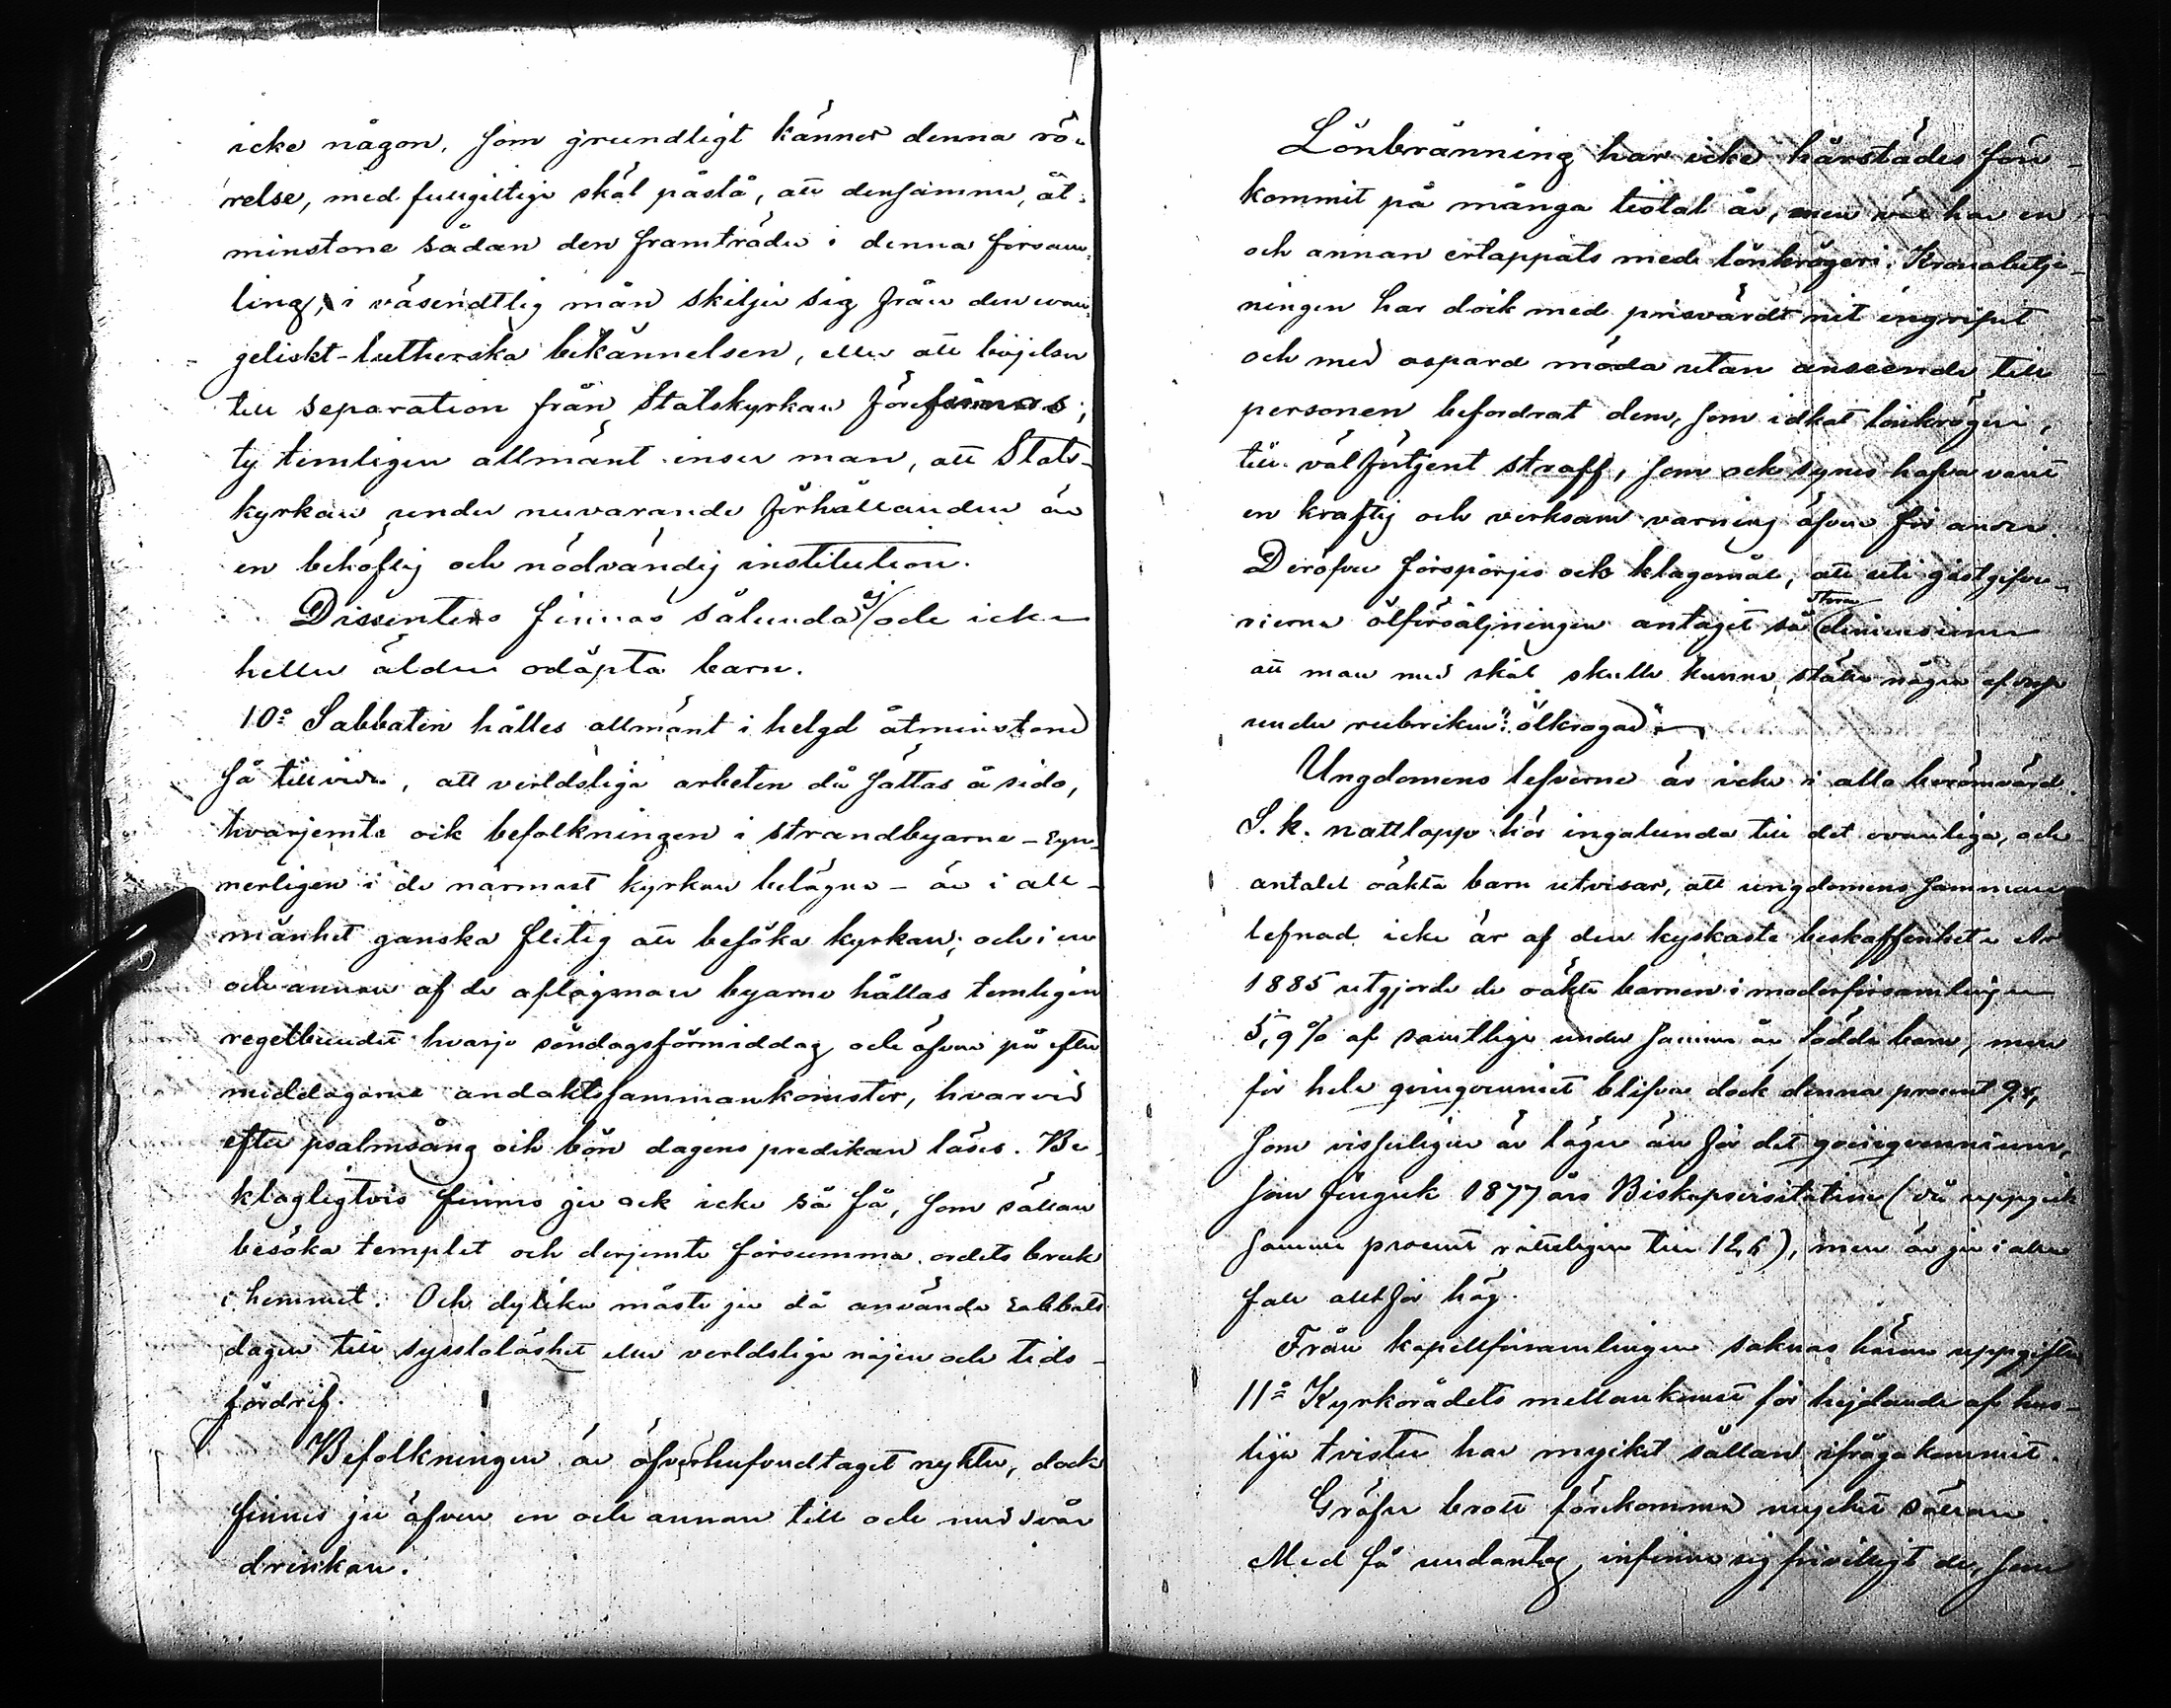 icke någon, som grundligt känner denna rö-
relse, med fullgiltiga skäl påstå, att densamma, åt-
minstone sådan den framträder i denna försam-
ling, i väsendtlig mån skiljer sig från den evan-
geliskt-lutherska bekännelsen, eller att böjelse
till separation från Statskyrkan förefinnas;
ty temligen allmänt inser man, att Stats-
kyrkan under nuvarande förhållanden är
en behöflig och nödvändig institution.
Dissenters finnas sålunda ej och icke
heller äldre odöpta barn.
10o Sabbaten hålles allmänt i helgd åtminstone
så tillvida, att verldsliga arbeten då sättas å sido,
hvarjemte ock befolkningen i strandbyarne - syn-
nerligen i de närmast kyrkan belägna - är i all-
mänhet ganska flitig att besöka kyrkan; och i en
och annan af de aflägsnare byarne hållas temligen
regelbundet hvarje söndagsförmiddag och äfven på efter
middagarne andaktssammankomster, hvarvid
efter psalmsång och bön dagens predikan läses. Be-
klagligtvis finnes ju ock icke så få, som sällan
besöka templet och derjemte försumma ordets bruk
i hemmet. Och dylika måste ju då använda sabbats
dagen till sysslolöshet eller verldsliga nöjen och tids-
fördrif.
Befolkningen är öfverhufvudtaget nykter, dock
finnes ju äfven en och annan till och med svår
drinkare.
Lönbränning har icke härstädes före-
kommit på många tiotal år, men väl har en
och annan ertappats med lönkrögeri. Kronobetje-
ningen har dock med prisvärdt nit ingripit
och med ospard möda utan anseende till
personen befordrat dem, som idkat lönkrögeri,
till välförtjent straff, som ock synes hafva varit
en kraftig och verksam varning äfven för andra.
Deröfver förspörjes ock klagomål, att uti gästgifve-
rierna ölförsäljningen antagit så stora dimensioner
att man med skäl skulle kunna ställa några af dessa
under rubriken: "ölkrogar".
Ungdomens lefverne är icke i allo berömvärd.
S. k. nattlopp hör ingalunda till det ovanliga, och
antalet oäkta barn utvisar, att ungdomens samman
lefnad icke är af den kyskaste beskaffenhet. År
1885 utgjorde de oäkta barnen i moderförsamlingen
5,9 % af samtliga under samma år födda barn, men
för hela qvinqvenniet blifver dock denna procent 9,8,
som visserligen är lägre än för det qvinqvennium,
som föregick 1877 års Biskopsvisitation (då uppgick
samma procent nitteligen till 12,6), men är ju i alla
fall alltför hög.
Från kapellförsamlingen saknas härom uppgifter
11o Kyrkorådets mellankomst för hejdande af hus-
liga tvister har mycket sällan ifrågakommit.
Gröfre brott förekomma mycket sällan.
Med få undantag infinna sig frivilligt de, som